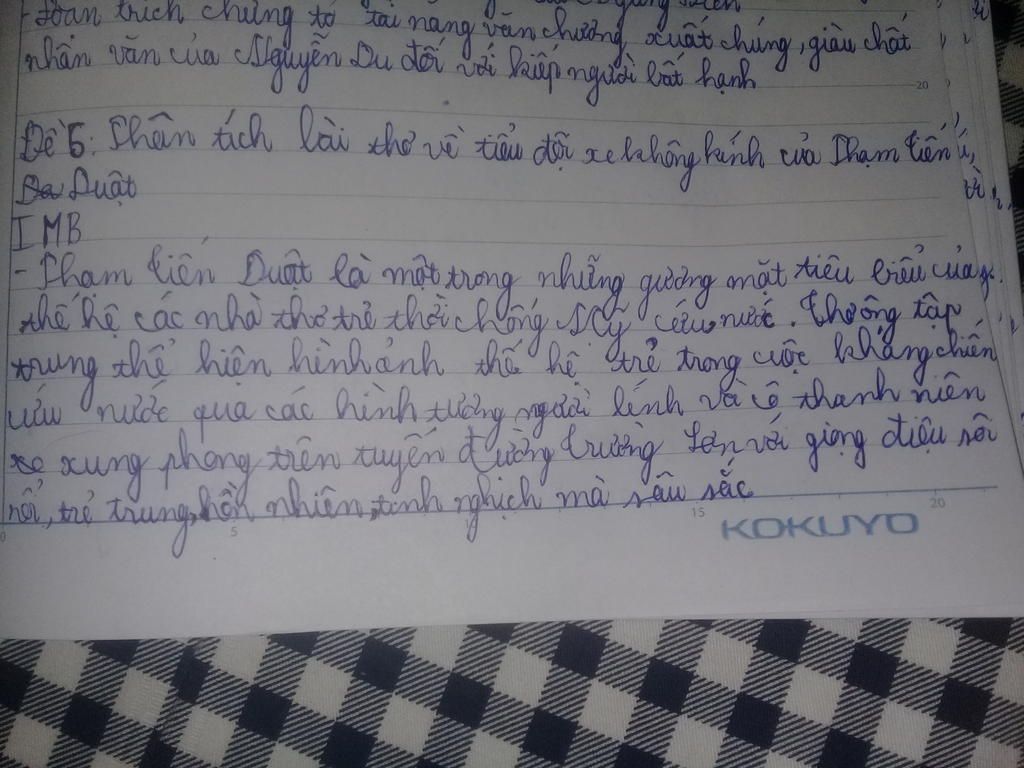 - Đoạn trích chứng tỏ tài năng văn chương xuất chúng, giàu chất
nhân văn của Nguyễn Du đối với kiếp người bất hạnh
20
Đề 5: Phân tích bài thơ về tiểu đội xe không kính của Phạm tiến
Duật
I MB
- Phạm tiến Duật là một trong những gương mặt tiêu biểu của
thế hệ các nhà thơ trẻ thời chống Mỹ cứu nước. Thơ ông tập
trung thể hiện hình ảnh thế hệ trẻ trong cuộc kháng chiến
cứu nước qua các hình tượng người lính và cô thanh niên
xung phong trên tuyến đường trường Sơn với giọng điệu sôi
nổi, trẻ trung, hồn nhiên, tinh nghịch mà sâu sắc
0 5 15 20
KOKUYO